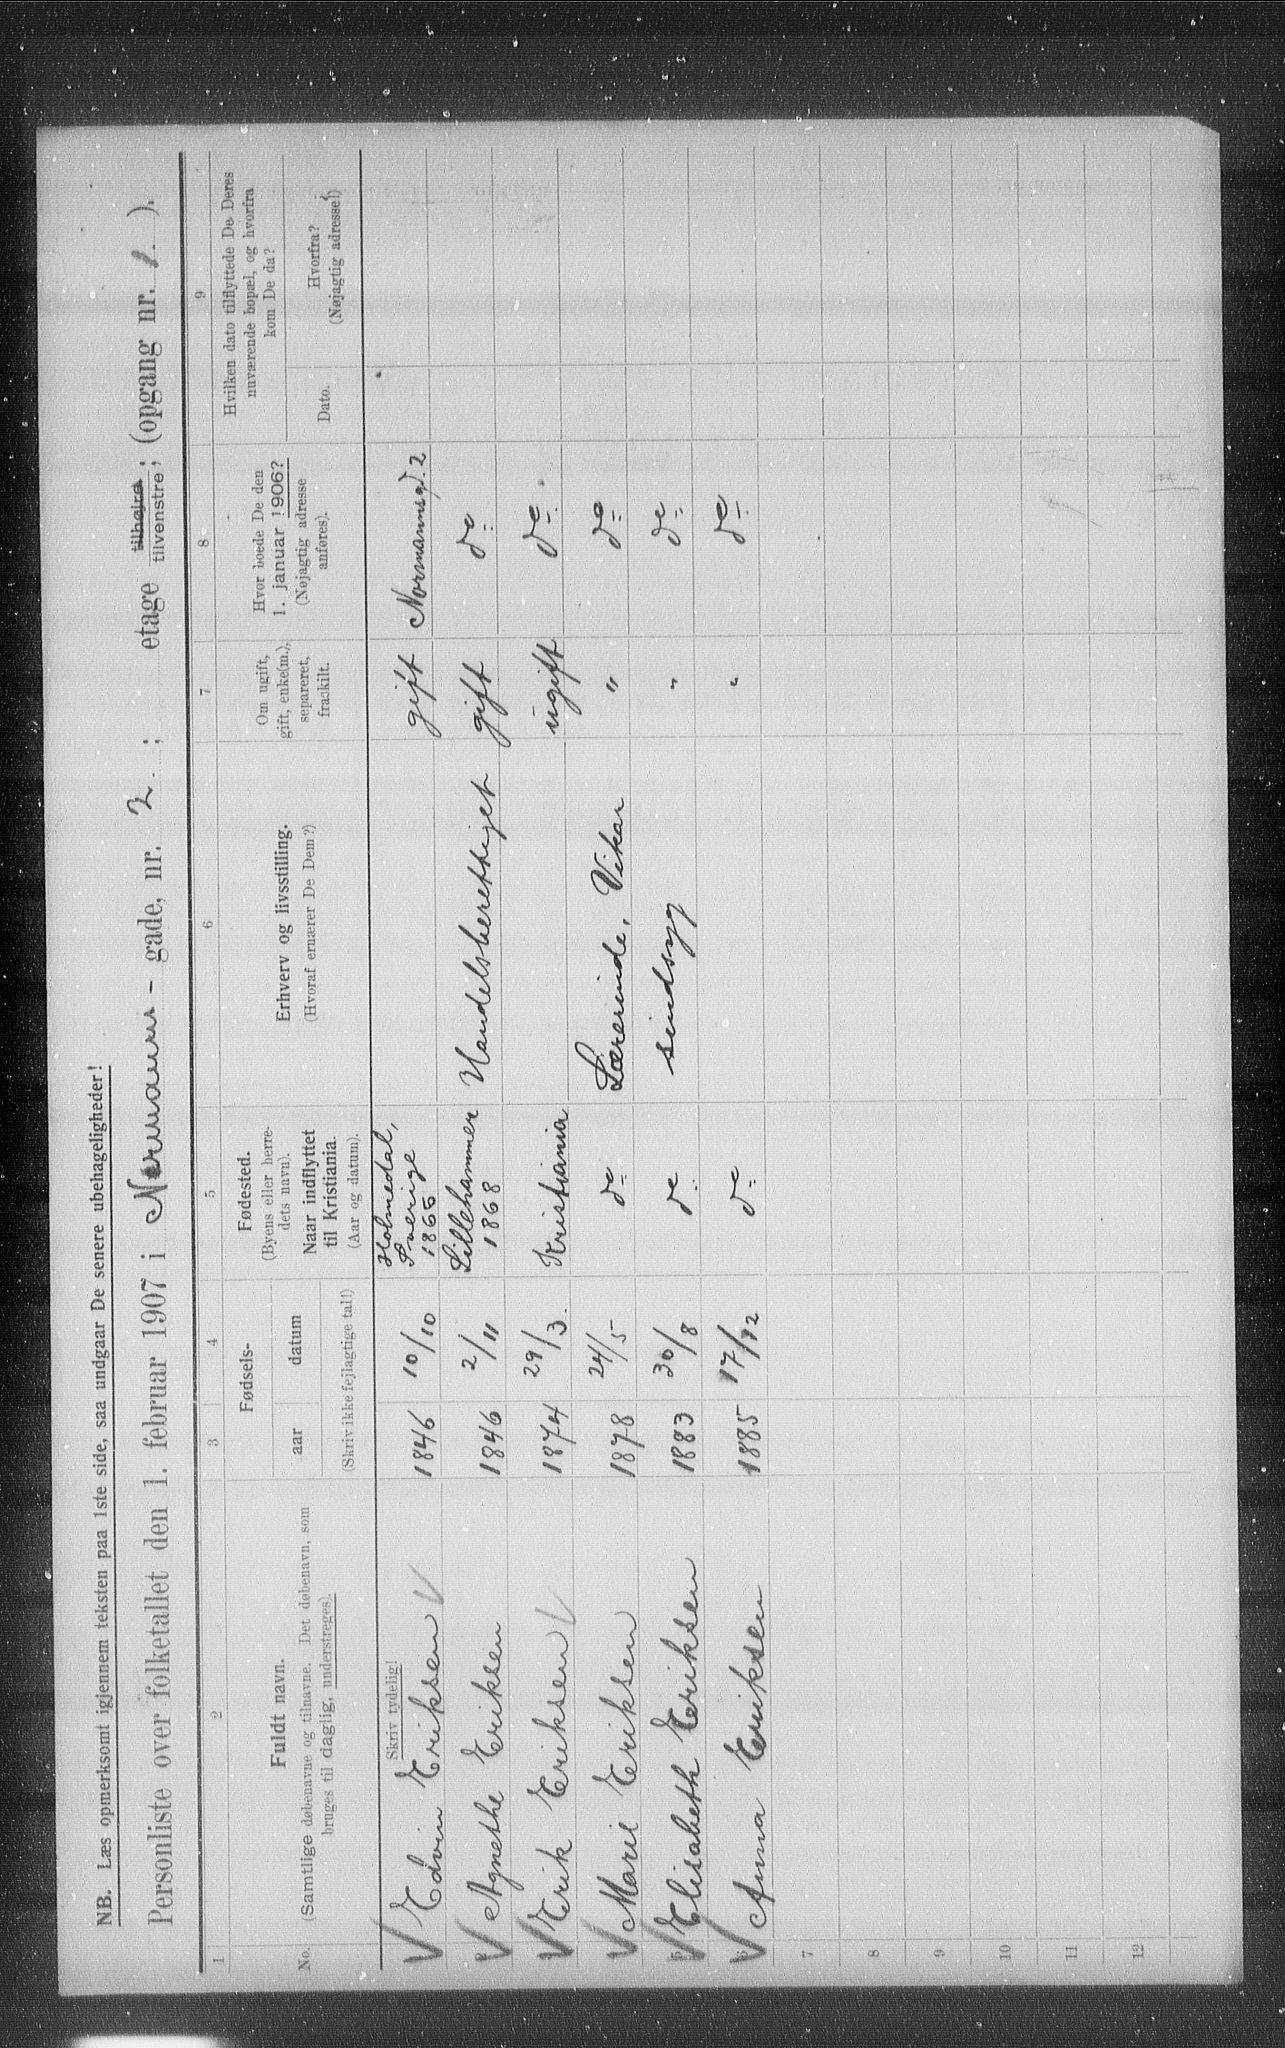 NB. Læs opmerksomt igjennem teksten paa 1ste side, saa undgaar De senere ubehageligheder!
Personliste over folketallet den 1. februar 1907 i Normanns - gade, nr. 2. ; etage tilhøjre tilvenstre; (opgang nr. 1. ).
1 2 3 4 5 6 7 8 9
No.
Fuldt navn.
(Samtlige døbenavne og tilnavne. Det døbenavn, som
bruges til daglig, understreges).
Fødsels-
aar datum
(Skriv ikke fejlagtige tal!)
Fødested.
(Byens eller herre-
dets navn).
Naar indflyttet
til Kristiania.
(Aar og datum).
Erhverv og livsstilling.
(Hvoraf ernærer De Dem?)
Om ugift,
gift, enke(m.),
separeret,
fraskilt.
Hvor boede De den
1. januar 1906?
(Nøjagtig adresse
anføres).
Hvilken dato tilflyttede De Deres
nuværende bopæl, og hvorfra
kom De da?
Dato.
Hvorfra?
(Nøjagtig adresse!)
Skriv tydelig!
Edvin Eriksen 1846 10/10 Holmedal, Sverige 1866 gift Normannsgd. 2
Agnethe Eriksen 1846 2/11 Lillehammer 1868 Handelsberettiget gift do
Erik Eriksen 1874 29/3. Kristiania ugift do.
Marie Eriksen 1878 24/5 do Lærerinde, Vikar " do
5 Elisabeth Eriksen 1883 30/8 do sindsyg " do
6 Anna Eriksen 1885 17/12 do " do
7
8
9
10
11
12